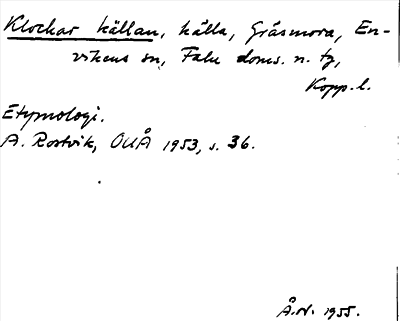 Klockar källan, källa, Gräsmora, En-
vikens sn, Falu doms. n. tg,
Kopp.l.
Etymologi.
A. Rostvik, OUÅ 1953, s. 36.
Å.N. 1955.